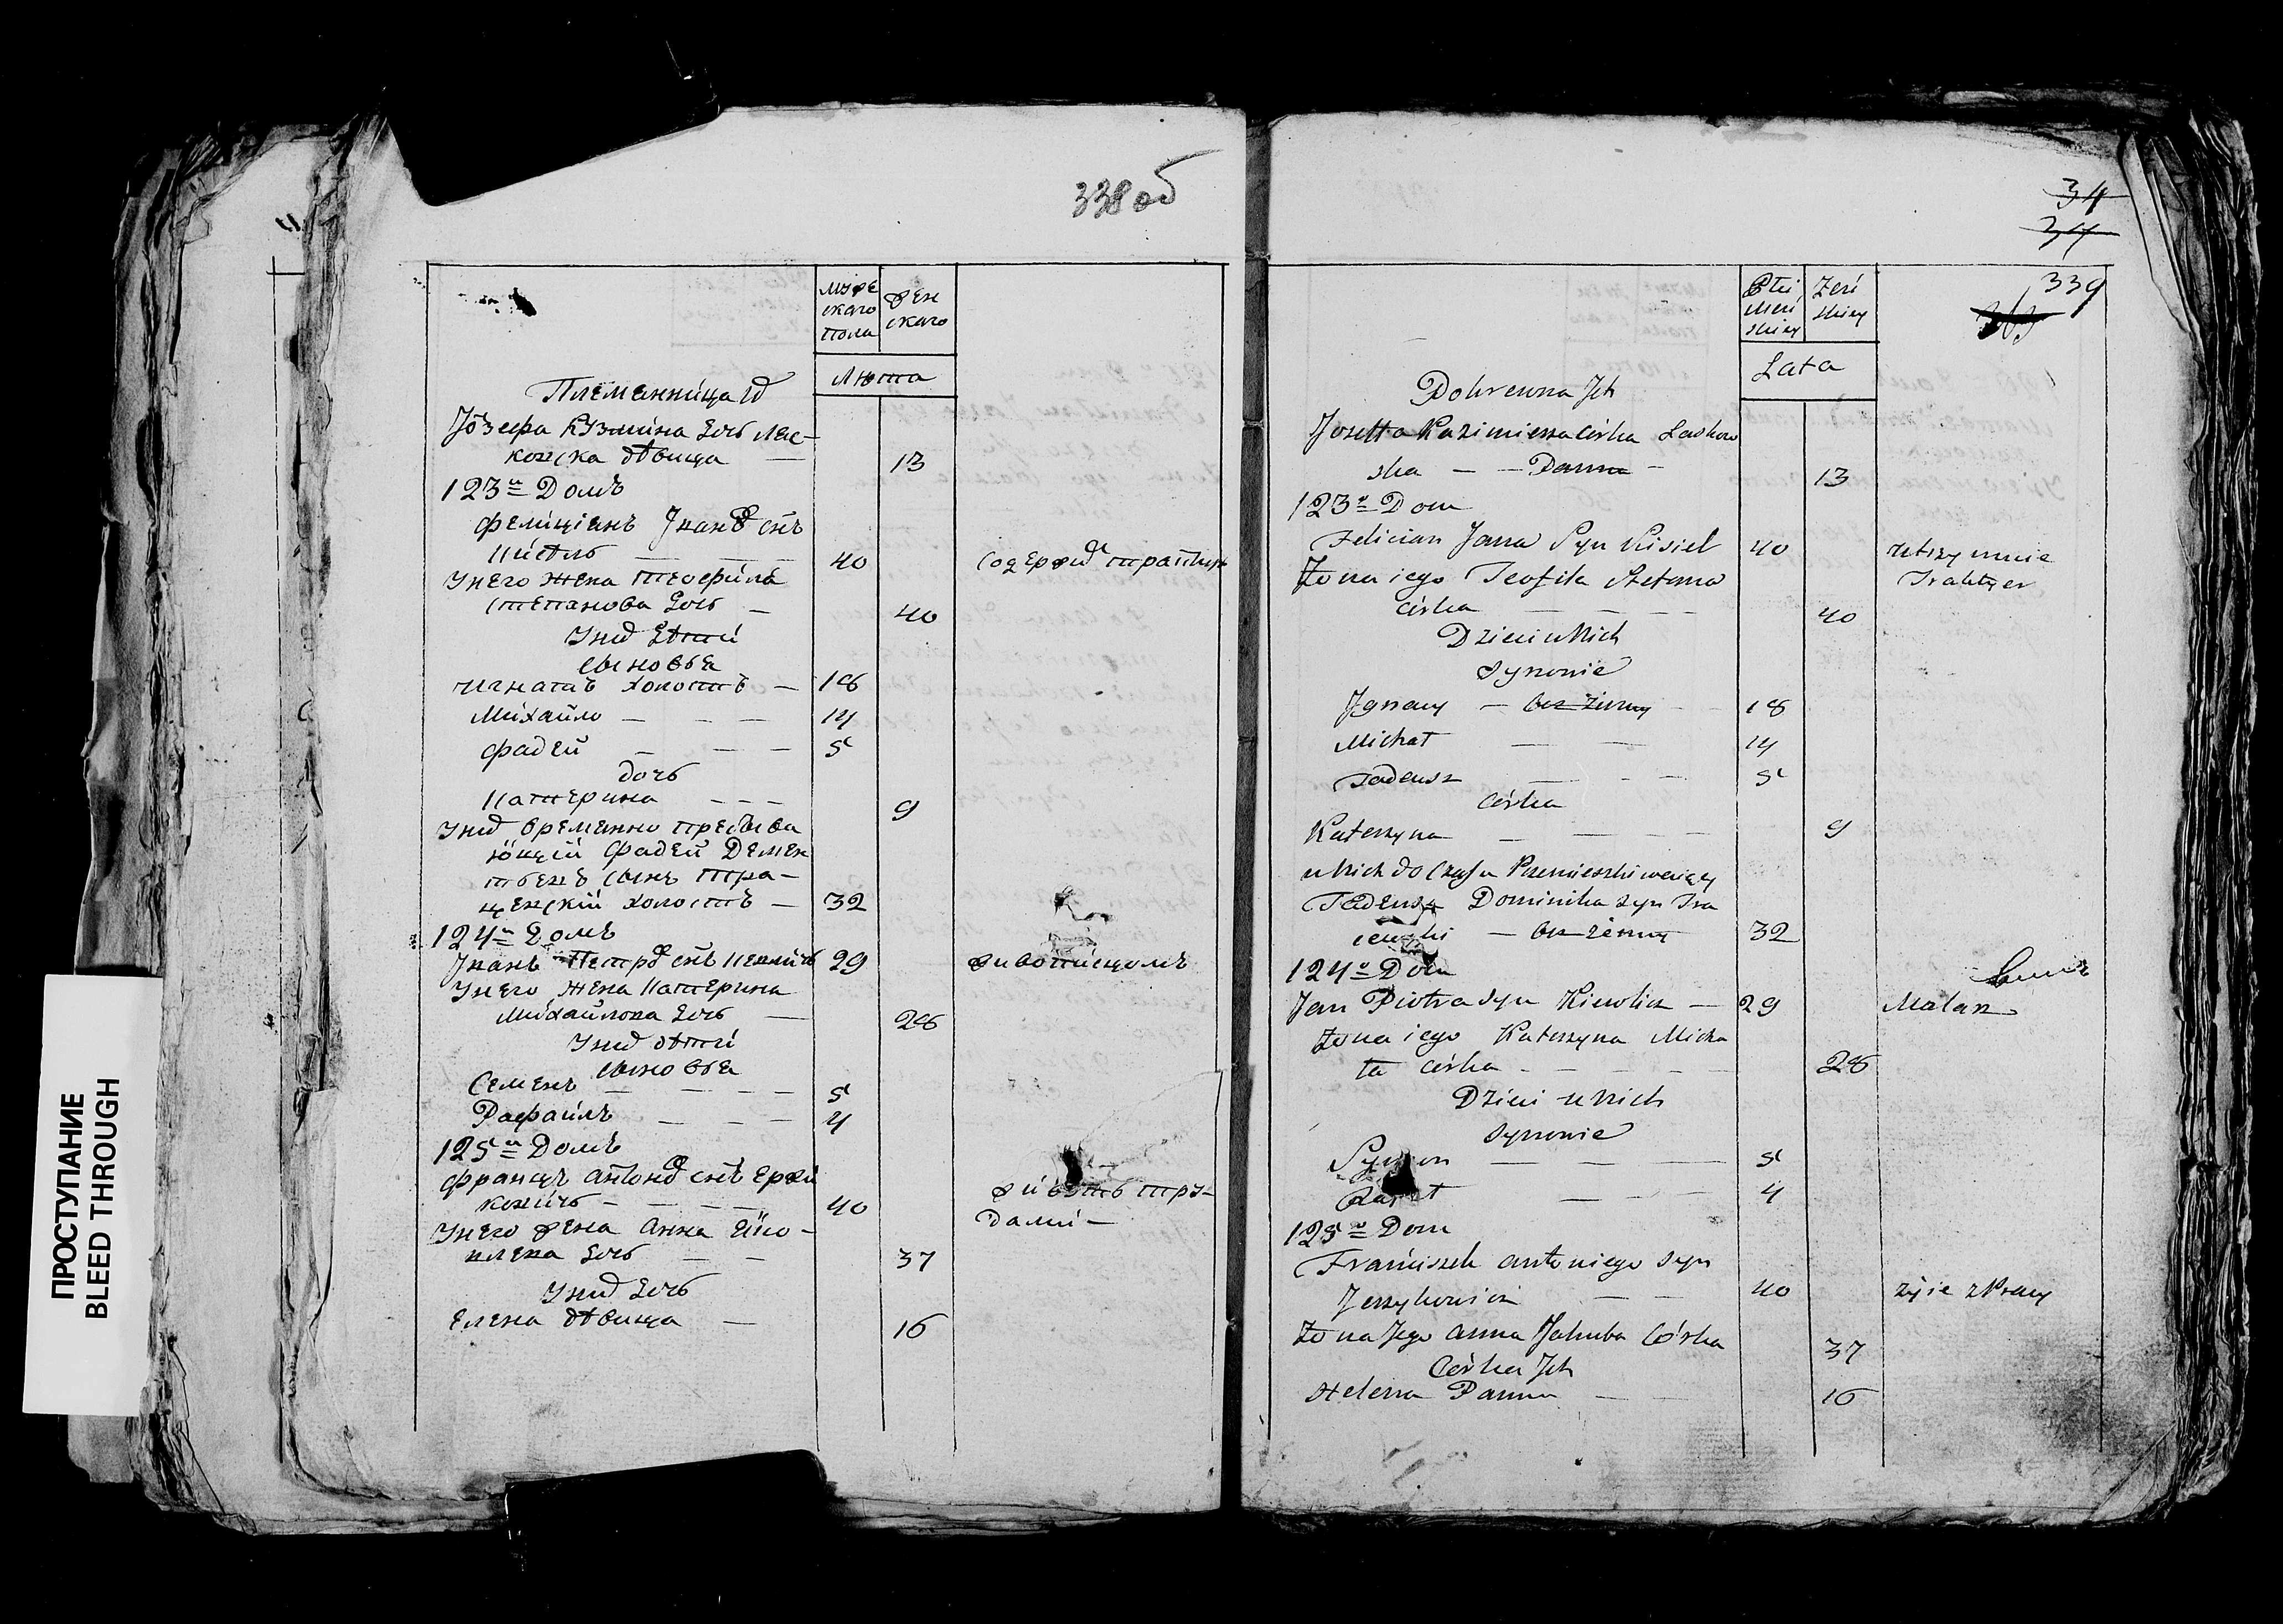 338 об
муже
скаго
пола
жен
скаго
Люта
Племянница их
Józефа Кузмина дочь Лас-
ковска дѣвица — 13
123й Домъ
Фелиціянъ Иванов снъ
Кисѣль — — 40 Содержит трактир
У него жена Теофила
Степанова дочь — 40
У них дѣти
сыновья
Игнатъ холостъ — 18
Михайло — — — 14
Фадей — — — 5
дочь
Катерина — — — 9
У них временно пребыва
ющій Фадей Демен
тьевъ сынъ Тра-
ценскій холостъ — 32
124й Домъ
Иванъ Петров снъ 29 живописцомъ
У него жена Катерина
Михайлова дочь — 28
У них дѣти
сыновья
Семенъ — — — 5
Рафаилъ — — — 4
125й Домъ
Францъ Антонов снъ Ержи
ковичъ — — — 40 живетъ тру-
дами —
У него жена Анна
дочь — — 37
У них дочь
Елена дѣвица — 16
34
34
339
Płci
męż
skiey
Żeń
skiey
Lata
Pokrewna Ich
Józeffa Kazimierza córka Laskow
ska — — Panna — 13
123й Dom
Felician Jana Syn Kisiel 40 utrzymuie
Żona iego Teofila Stefana Traktyer
córka — — — — 40
Dzieci u Nich
Synowie
Ignacy — bez żenny — 18
Michał — — 14
Tadeusz — — — 5
Córka
Katerzyna — — — — 9
u Nich do Czasu Pomieszkiwaiący
Tadeusz Dominika syn Tra
censki — bez żenny 32
124й Dom
Jan Piotra syn Kiewlicz — 29 Malarz
Żona iego Katerzyna Micha
ła córka — — — — 28
Dzieci u Nich
Synowie
Szymon — — — 5
Rafał — — — 4
125й Dom
Franciszek Antoniego syn
Jerzykowicz — — 40 żyie z Pracy
Żona Jego Anna Jakuba Córka 37
Córka Ich
Helena Panna — — 16
ПРОСТУПАНИЕ
BLEED THROUGH